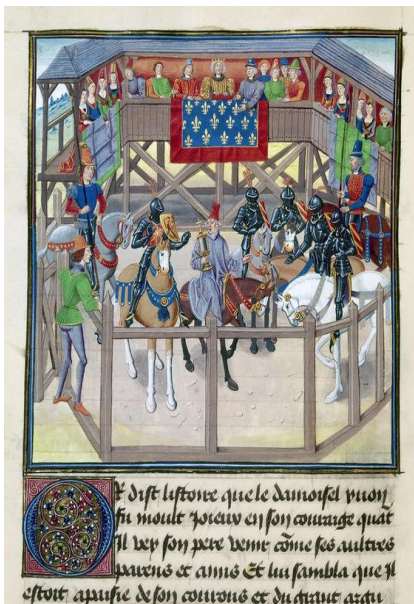 Or dist listoire que le damoisel yuon
fu moult Joieux en son couraige quāt
Il vey son pere venir cōme ses aultres
parens et amis Et lui sambla que Il
estoit apaisie de son courous et du grant